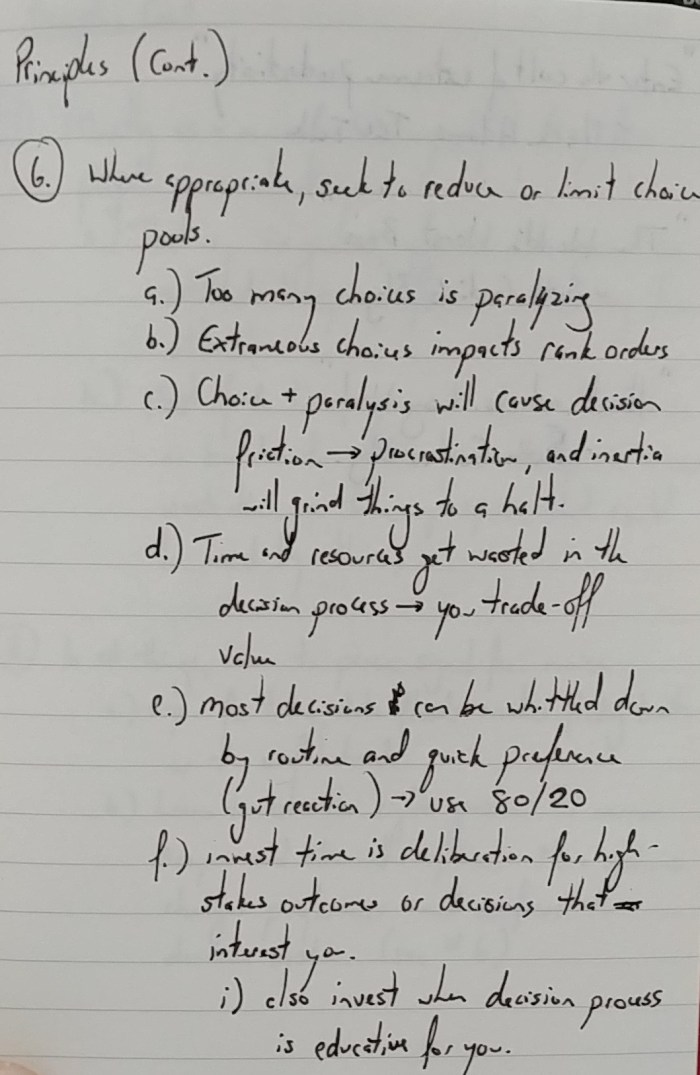 Principles (Cont.)
6. Where appropriate, seek to reduce or limit choice
pools.
a.) Too many choices is paralyzing
b.) Extraneous choices impacts rank orders
c.) Choice + paralysis will cause decision
friction → procrastination, and inertia
will grind things to a halt.
d.) Time and resources get wasted in the
decision process → you trade-off
value
e.) most decisions can be whittled down
by routine and quick preference
(gut reaction) → use 80/20
f.) invest time is deliberation for high-
stakes outcomes or decisions that
interest you.
i) also invest when decision process
is educative for you.